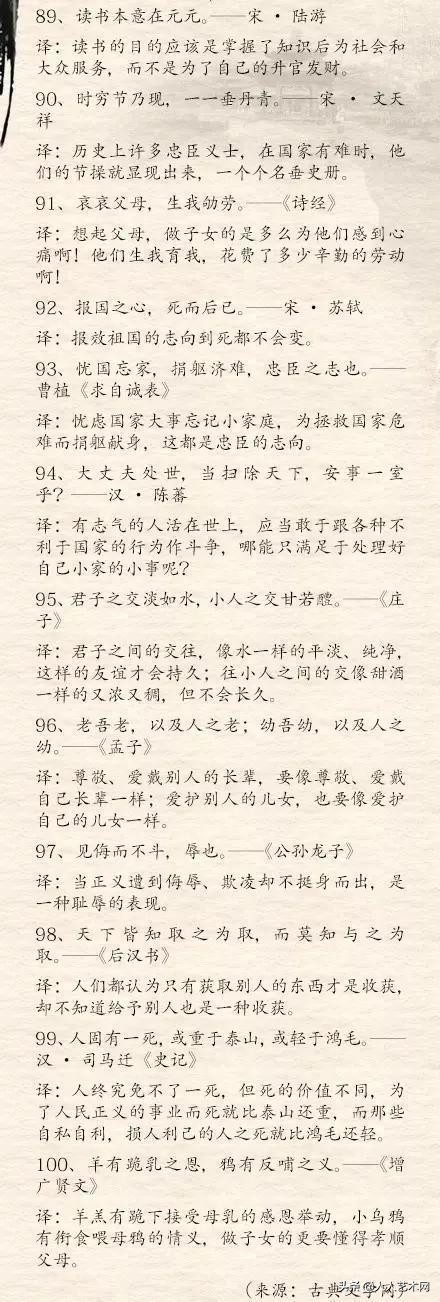 89、读书本意在元元。——宋 · 陆游
译：读书的目的应该是掌握了知识后为社会和
大众服务，而不是为了自己的升官发财。
90、时穷节乃现，一一垂丹青。——宋 · 文天
祥
译：历史上许多忠臣义士，在国家有难时，他
们的节操就显现出来，一个个名垂史册。
91、哀哀父母，生我劬劳。——《诗经》
译：想起父母，做子女的是多么为他们感到心
痛啊！他们生我育我，花费了多少辛勤的劳动
啊！
92、报国之心，死而后已。——宋 · 苏轼
译：报效祖国的志向到死都不会变。
93、忧国忘家，捐躯济难，忠臣之志也。——
曹植《求自诚表》
译：忧虑国家大事忘记小家庭，为拯救国家危
难而捐躯献身，这都是忠臣的志向。
94、大丈夫处世，当扫除天下，安事一室
乎？——汉 · 陈蕃
译：有志气的人活在世上，应当敢于跟各种不
利于国家的行为作斗争，哪能只满足于处理好
自己小家的小事呢？
95、君子之交淡如水，小人之交甘若醴。——《庄
子》
译：君子之间的交往，像水一样的平淡、纯净，
这样的友谊才会持久；往小人之间的交像甜酒
一样的又浓又稠，但不会长久。
96、老吾老，以及人之老；幼吾幼，以及人之
幼。——《孟子》
译：尊敬、爱戴别人的长辈，要像尊敬、爱戴
自己长辈一样；爱护别人的儿女，也要像爱护
自己的儿女一样。
97、见侮而不斗，辱也。——《公孙龙子》
译：当正义遭到侮辱、欺凌却不挺身而出，是
一种耻辱的表现。
98、天下皆知取之为取，而莫知与之为
取。——《后汉书》
译：人们都认为只有获取别人的东西才是收获，
却不知道给予别人也是一种收获。
99、人固有一死，或重于泰山，或轻于鸿毛。——
汉 · 司马迁《史记》
译：人终究免不了一死，但死的价值不同，为
了人民正义的事业而死就比泰山还重，而那些
自私自利，损人利己的人之死就比鸿毛还轻。
100、羊有跪乳之恩，鸦有反哺之义。——《增
广贤文》
译：羊羔有跪下接受母乳的感恩举动，小乌鸦
有衔食喂母鸦的情义，做子女的更要懂得孝顺
父母。
（来源：古典文学网）
头条@人人艺术网